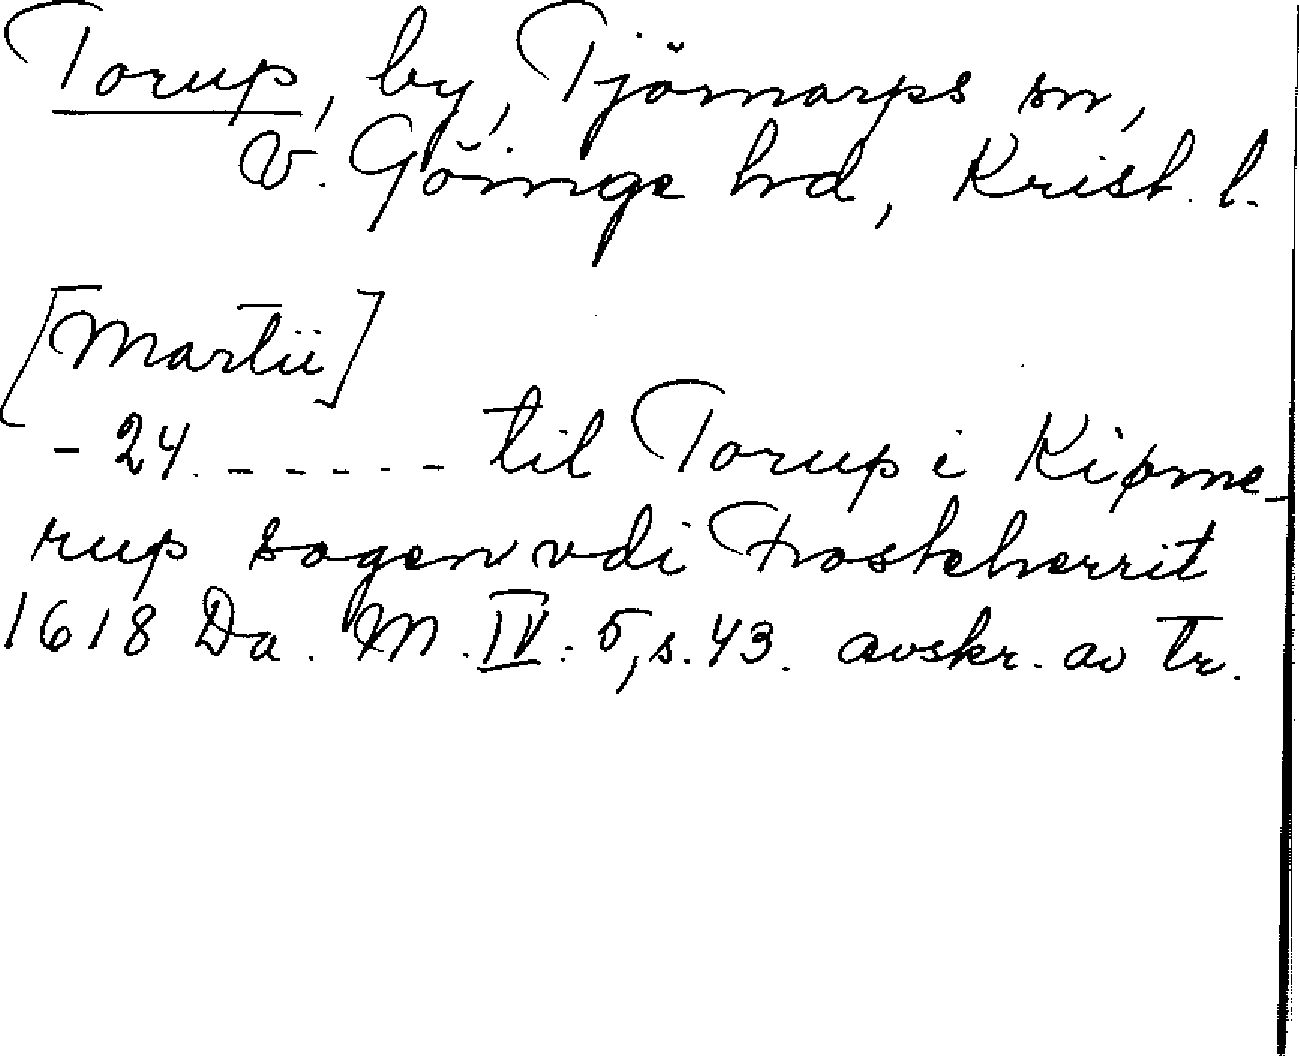 Torup, by, Tjörnarps sn,
V. Göinge hd, Krist. l.
[Martii]
- 24. - - - - - til Torup i Kiørne-
rup sogen vdi Frosteherrit
1618 Da. M. IV: 5, s. 43. avskr. av tr.